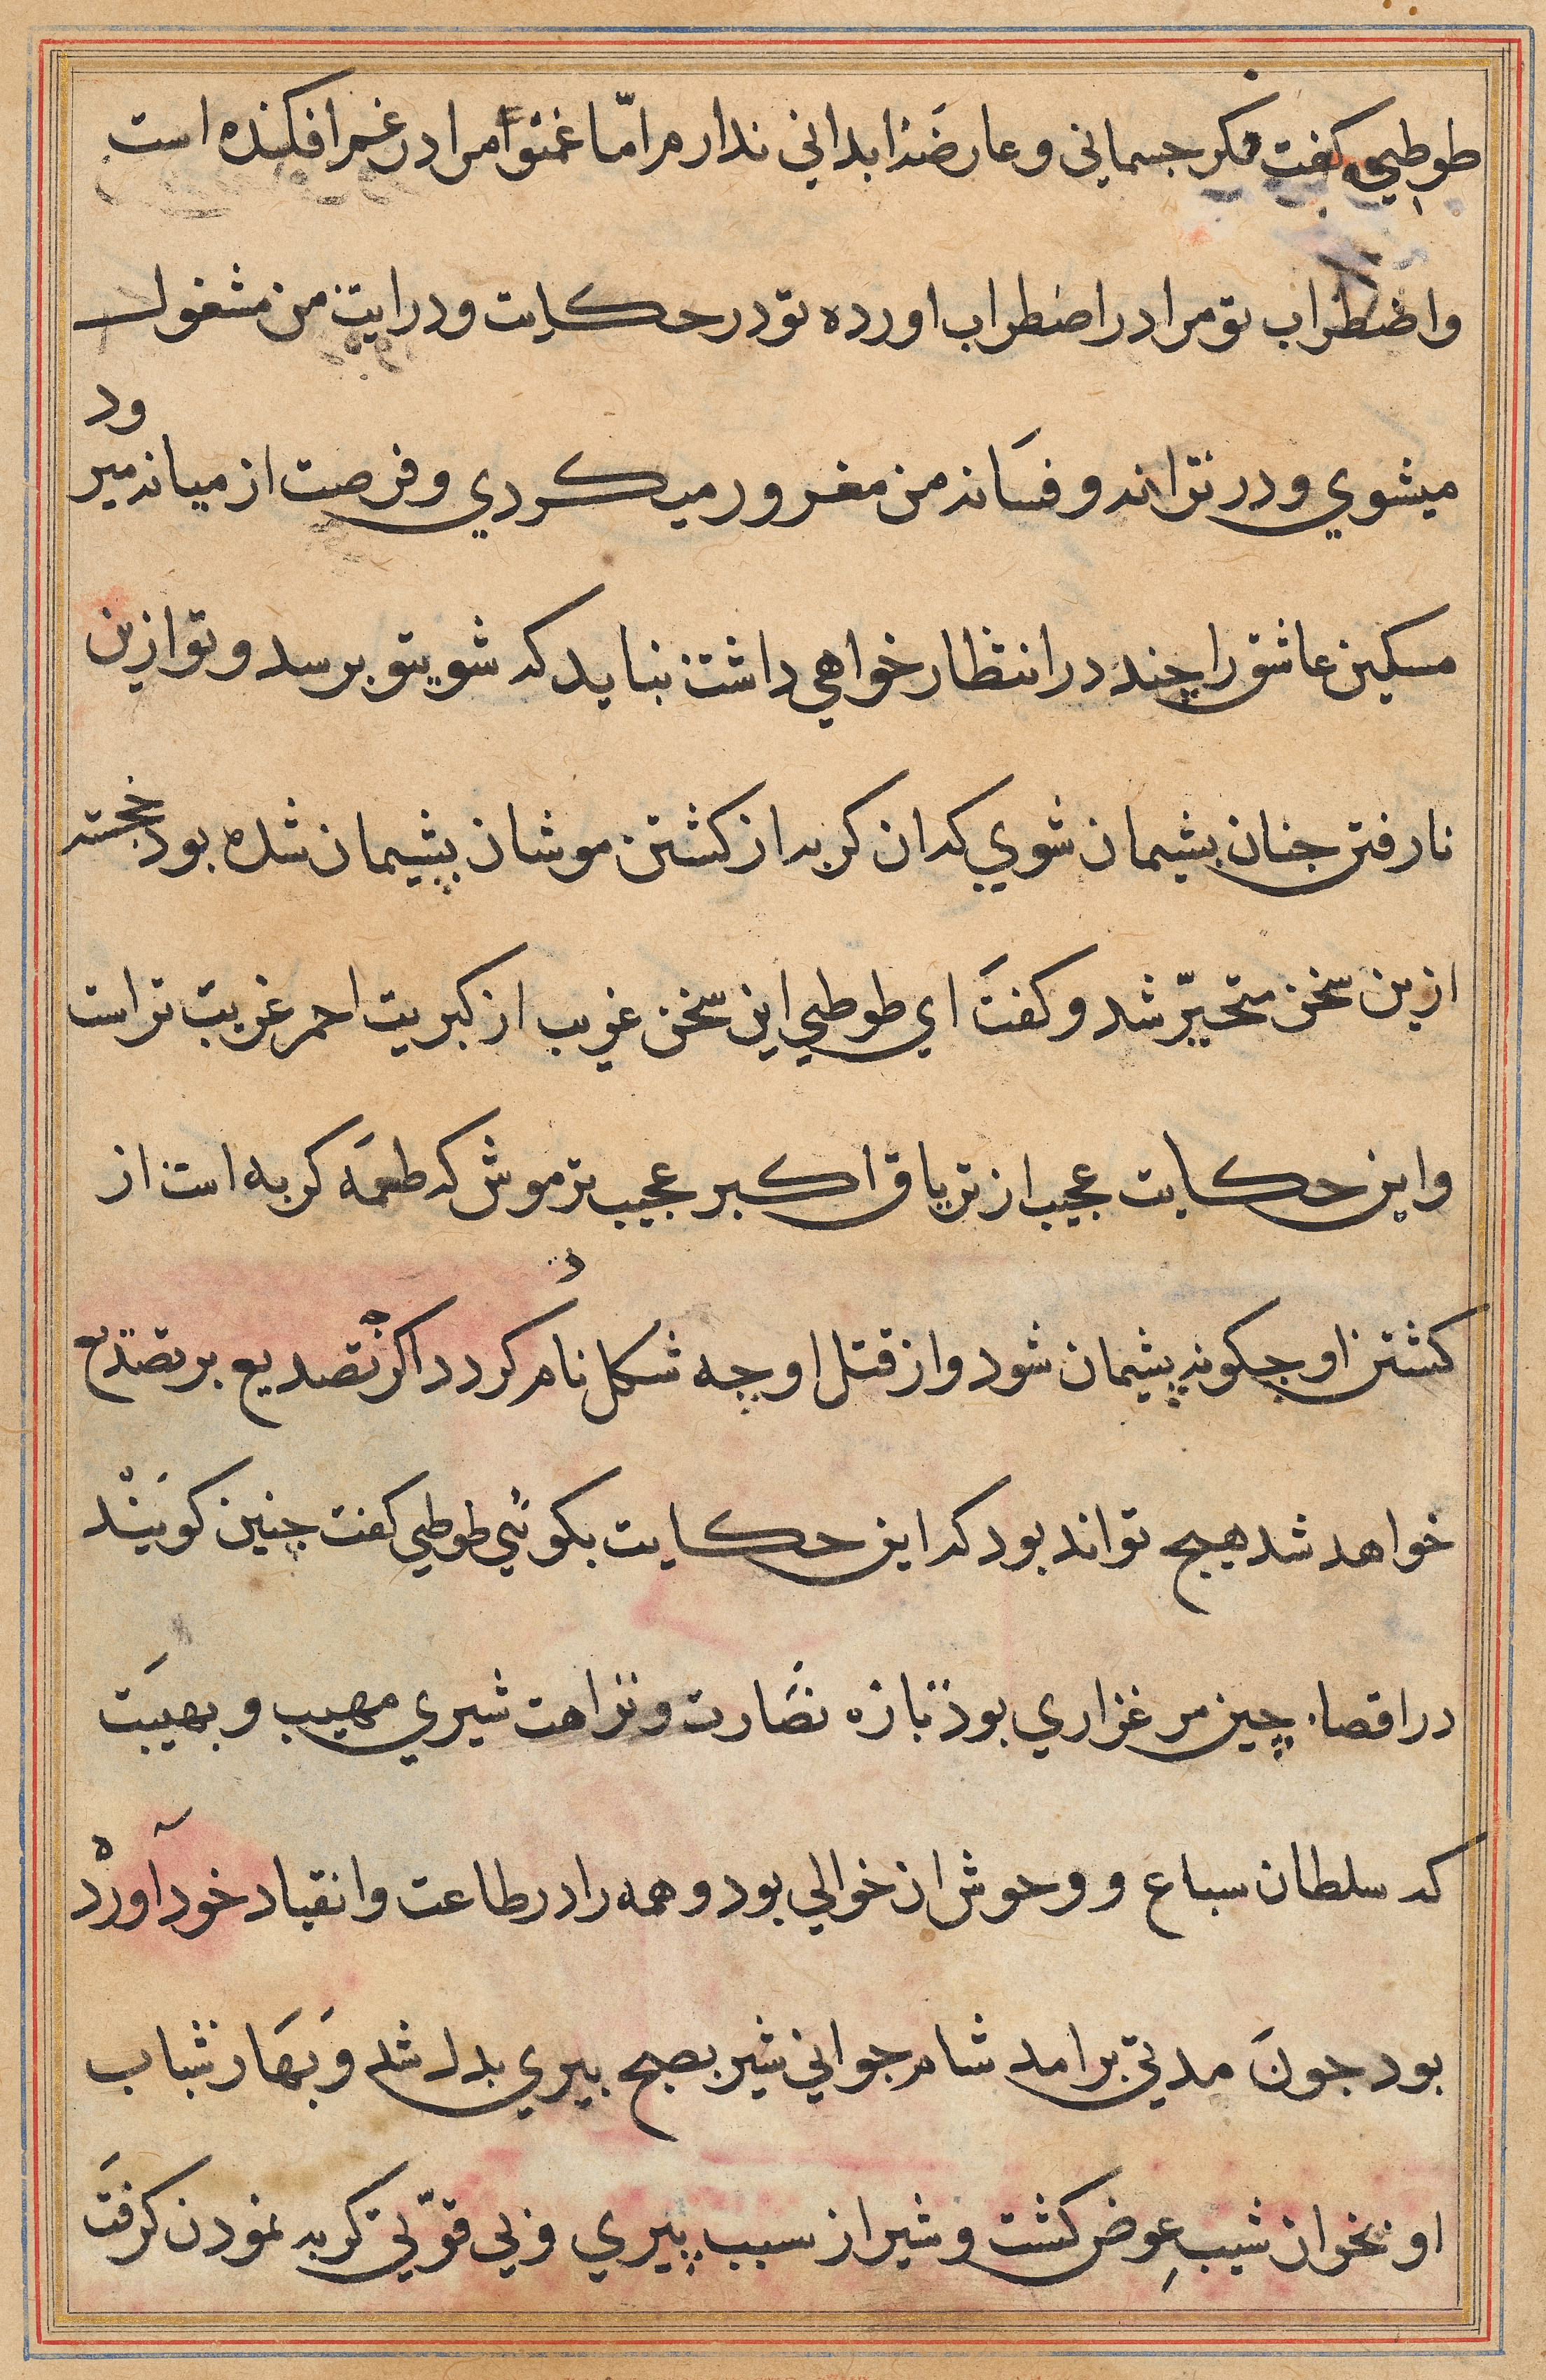 طوطي گفت فکر جسماني و عارضه ابداني ندارم امّا غم تو مرا در غم افکنده است
واضطراب تو مرا در اضطراب اورده تو در حکایت و درایت من مشغول
میشوي و در ترانه و فسانه من مغرور میکردي و فرصت از میانه میرود
مسکین عاشق را چند در انتظار خواهي داشت نباید که شوي بتو برسد و تو ازین
نارفتن جنان پشیمان شوي که ان کربه از کشتن موشان پشیمان شده بود خجسته
ازین سخن متحیّر شد و کفت اي طوطي این سخن غریب از کبریت احمر غریب تر است
واین حکایت عجیب از تریاق اکبر عجیب تر موش که طعمه کربه است از
کشتن او جکونه پشیمان شود و از قتل او چه شکل نادم کردد اکر تصدیع بر تصدیع
خواهد شد هیج تواند بود که این حکایت بکوئي طوطي کفت چنین کویند
در اقصاء چین مرغزاري بود تازه نضارت و نزاهت شیري مهیب و بهیبت
که سلطان سباع و وحوش ان حوالي بود و همه را در طاعت و انقیاد خود آورده
بود جون مدتي برامد شام جواني شیر بصبح پیري بدل شد و بهار شباب
او بخزان شیب عوض کشت و شیر از سبب پیري و بي قوّتي کربه نمودن کرفت